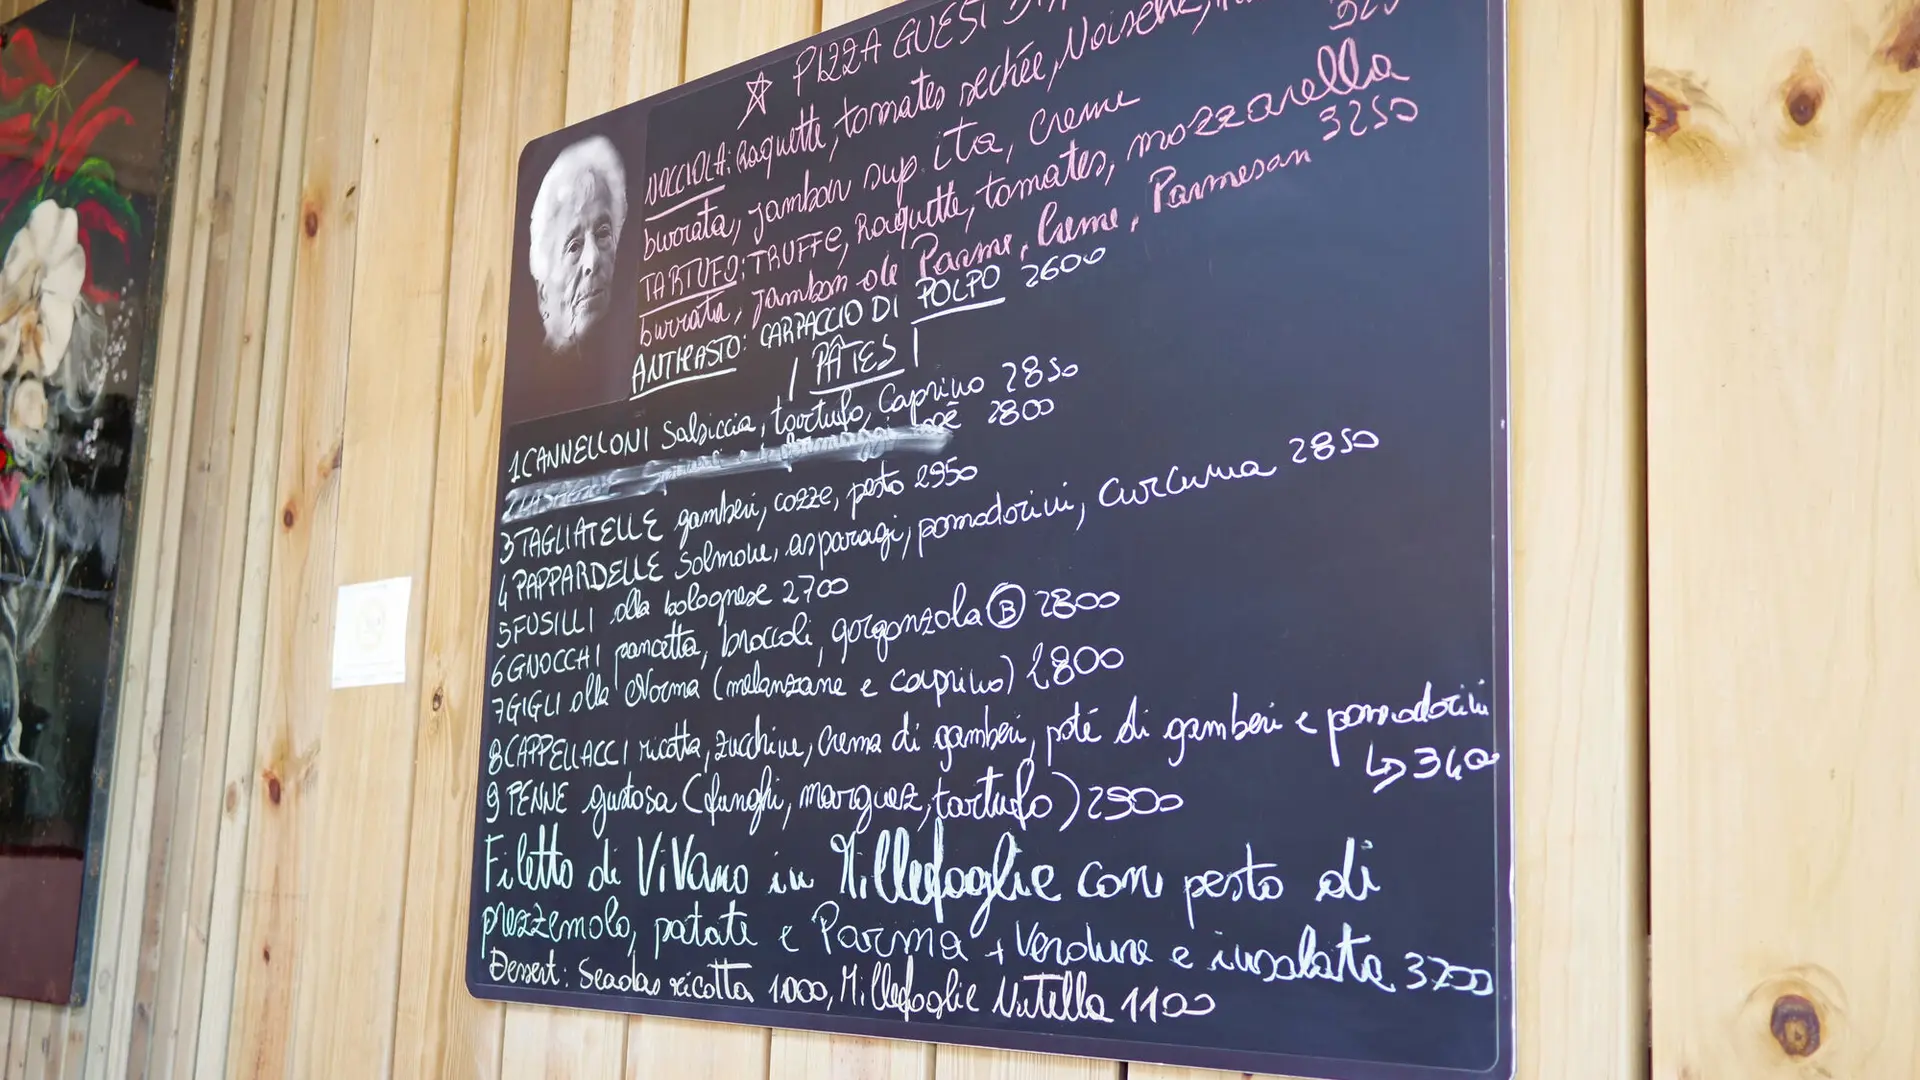 ☆ PIZZA GUEST
NOCCIOLA: Roquette, tomates sechée, Noisette,
burrata, jambon sup. ita, Creme
TARTUFO: TRUFFE, Roquette, tomates, mozzarella
burrata, jambon de Parme, Creme, Parmesan 3250
ANTIPASTO: CARPACCIO DI POLPO 2600
| PÂTES |
1 CANNELLONI Salsiccia, tartufo, Caprino 2850
2800
3 TAGLIATELLE gamberi, cozze, pesto 2950
4 PAPPARDELLE Salmone, asparagi, pomodorini, curcuma 2850
5 FUSILLI alla bolognese 2700
6 GNOCCHI pancetta, broccoli, gorgonzola Ⓑ 2800
7 GIGLI alla Norma (melanzane e caprino) 2800
8 CAPPELLACCI ricotta, zucchine, crema di gamberi, paté di gamberi e pomodorini
↳ 3400
9 PENNE gustosa (funghi, marguez, tartufo) 2900
Filetto di ViVano in Millefoglie con pesto di
prezzemolo, patate e Parma + Verdure e insalata 3200
Dessert: Seadas ricotta 1000, Millefoglie Nutella 1100